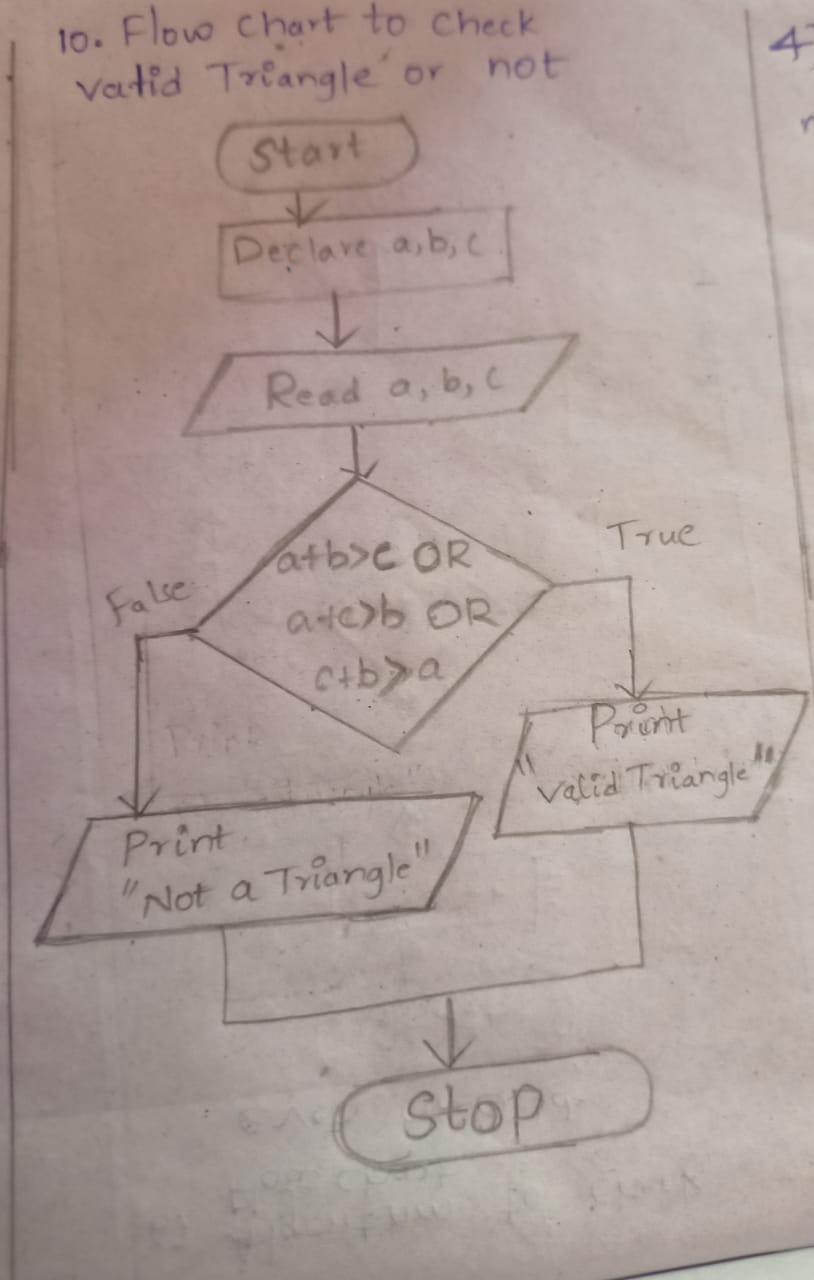 10. Flow chart to check
valid Triangle or not
Start
Declare a,b,c
Read a, b, c
a+b>c OR
a+c>b OR
c+b>a
True
False
Print
"valid Triangle"
Print
"Not a Triangle"
Stop
4